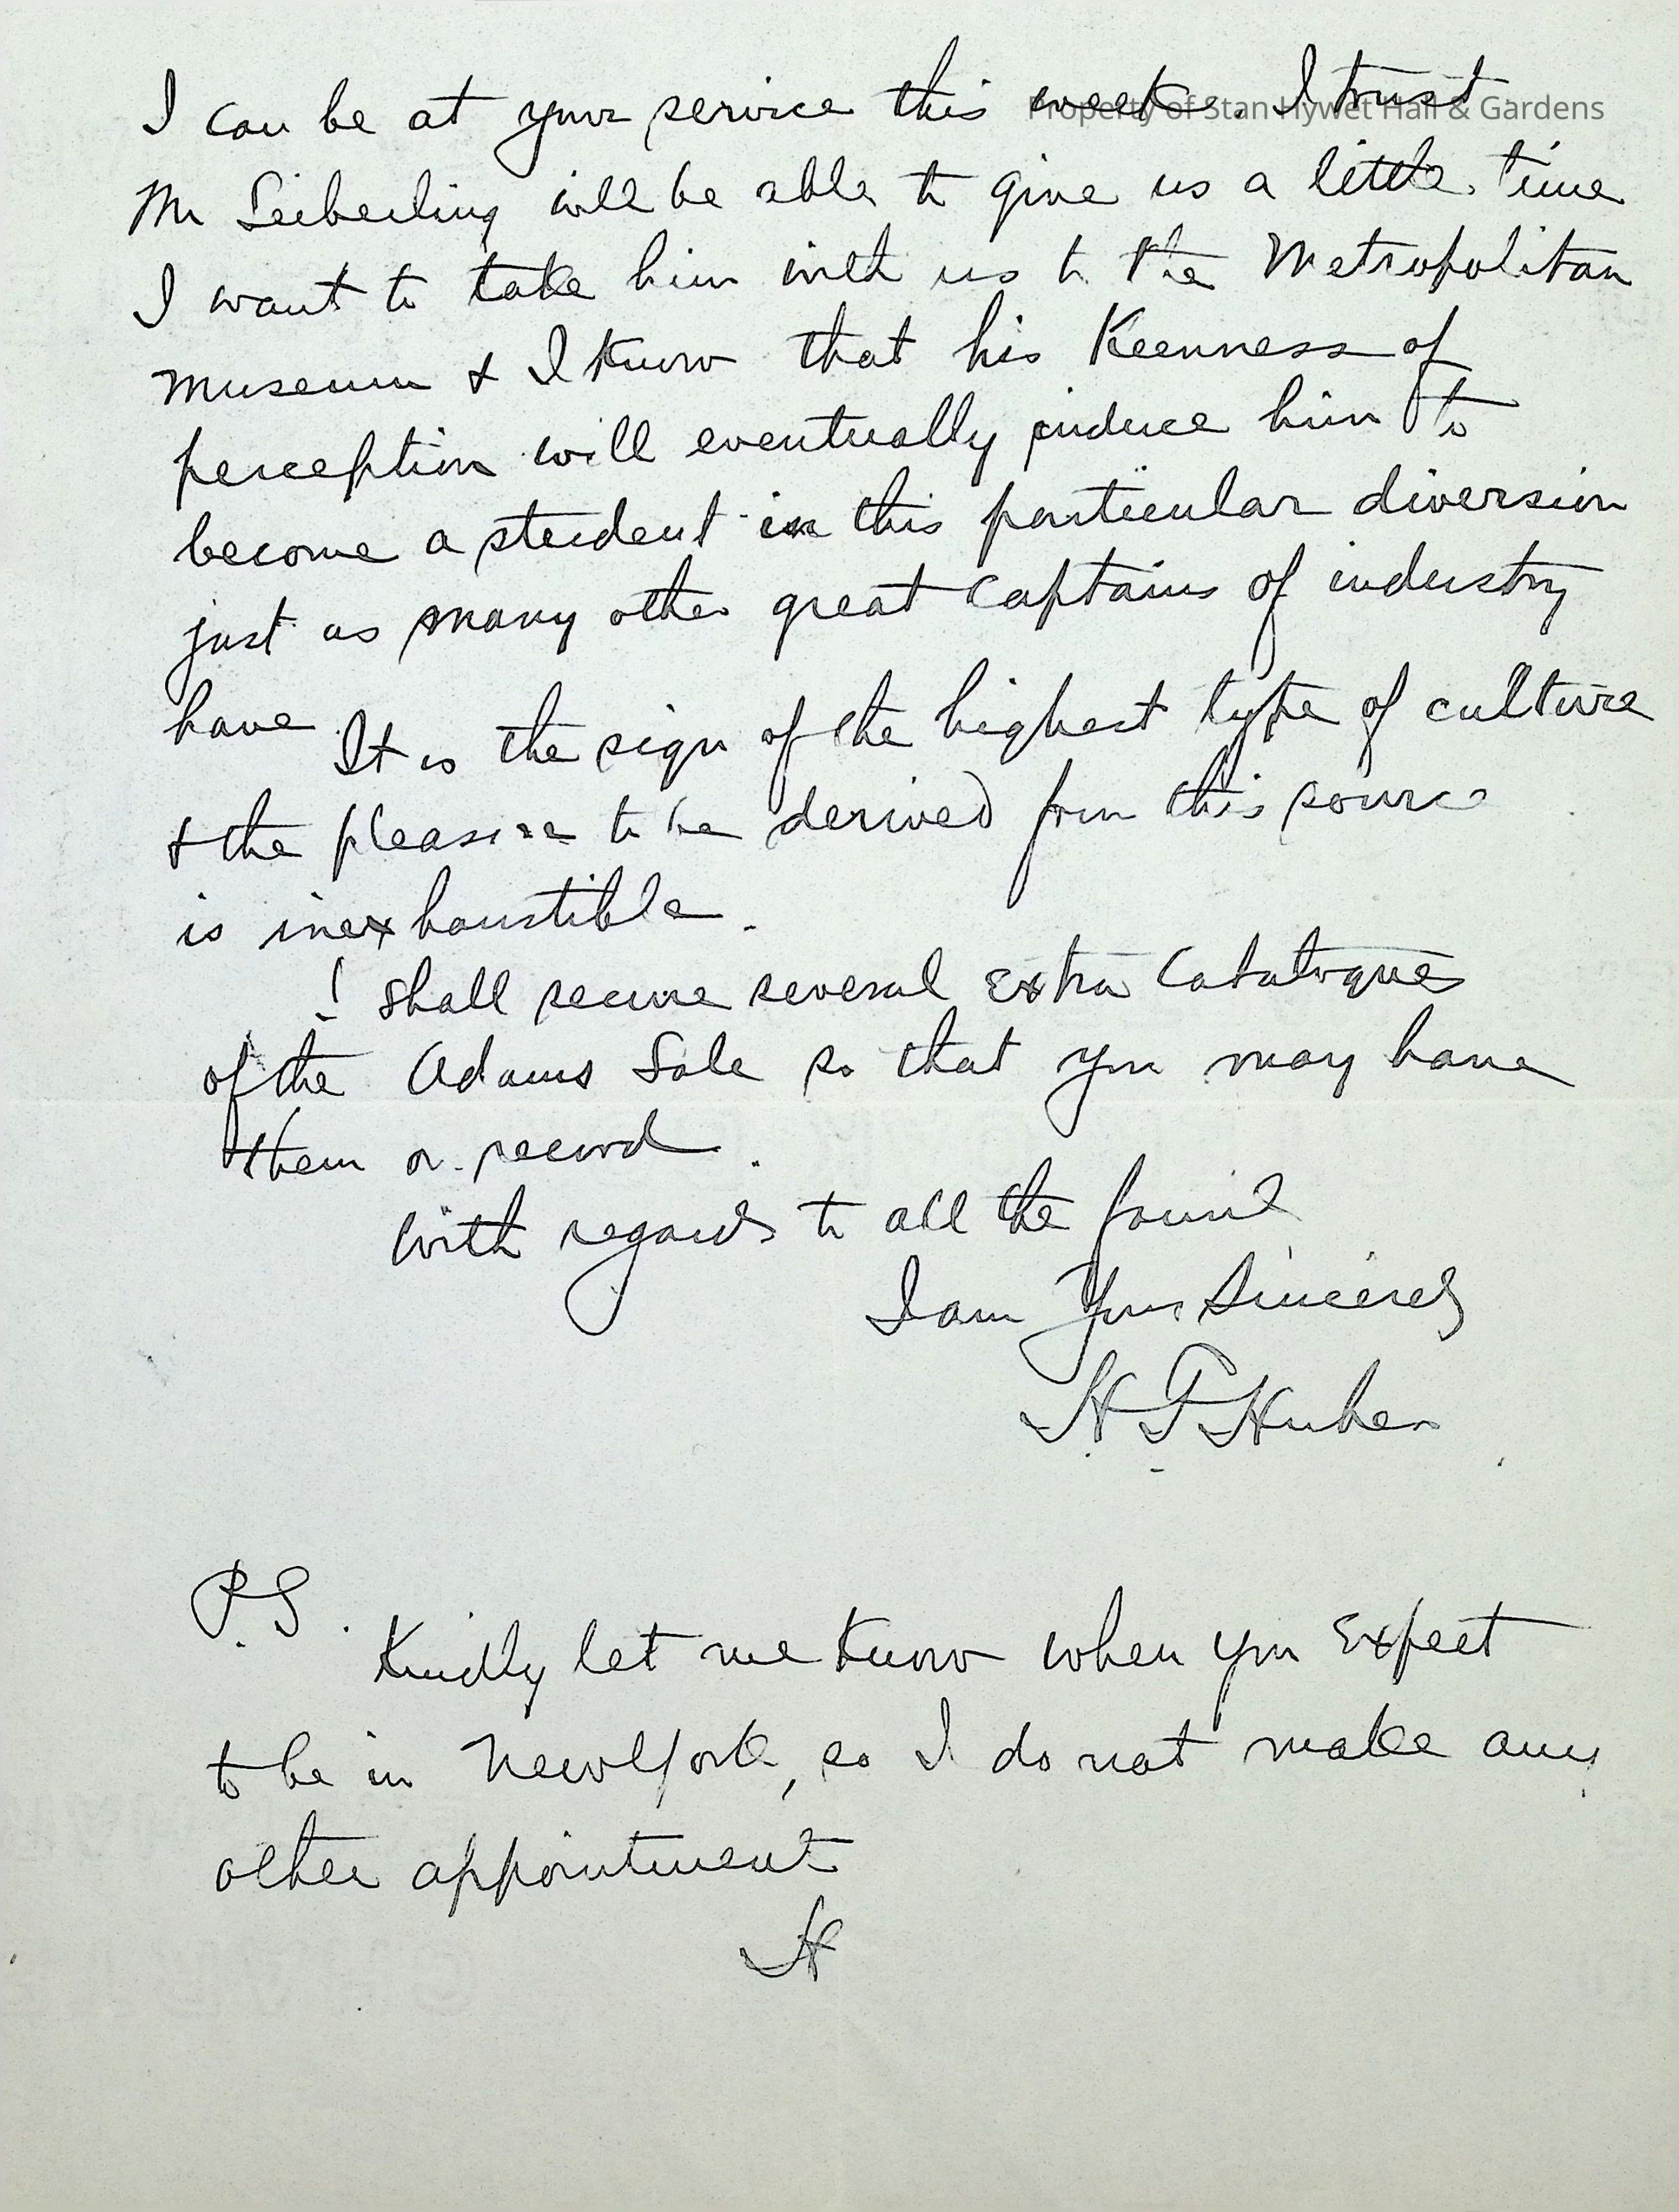 Property of Stan Hywet Hall & Gardens
I can be at your service this week. I trust
Mr Seiberling will be able to give us a little time
I want to take him with us to the Metropolitan
Museum & I know that his keenness of
perception will eventually induce him to
become a student in this particular diversion
just as many other great Captains of industry
have. It is the sign of the highest type of culture
& the pleasure to be derived from this source
is inexhaustible.
I shall secure several extra Catalogues
of the Adams Sale so that you may have
them on record.
With regards to all the family
I am Yours Sincerely
H. F. Huber
P.S.
Kindly let me know when you Expect
to be in New York, so I do not make any
other appointment
H